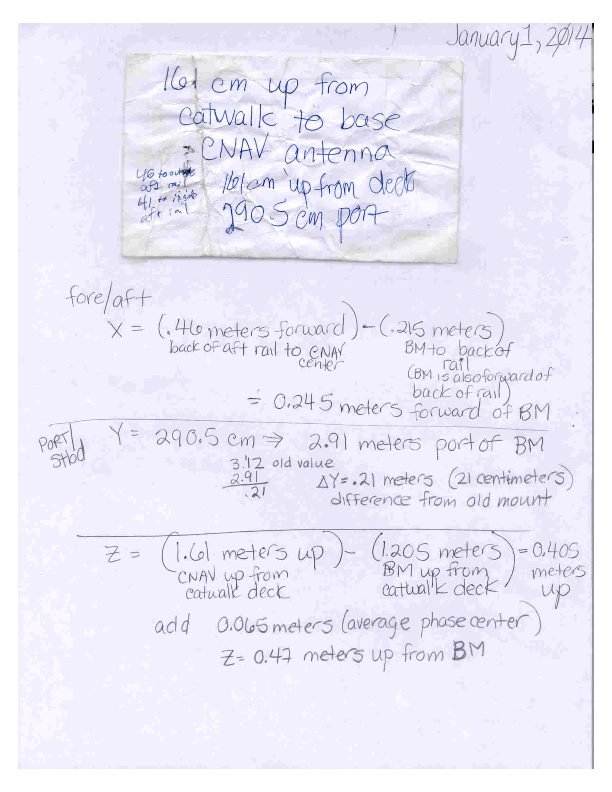 January 1, 2014
161 cm up from
catwalk to base
CNAV antenna
46 to outside
aft rail
41 to inside
aft rail
161 cm up from deck
290.5 cm port
fore/aft
X = (.46 meters forward) - (.215 meters)
back of aft rail to CNAV
center
BM to back of
rail
(BM is also forward of
back of rail)
= 0.245 meters forward of BM
PORT/
Stbd
Y = 290.5 cm ⇒ 2.91 meters port of BM
3.12 old value
2.91
.21
ΔY = .21 meters (21 centimeters)
difference from old mount
Z = (1.61 meters up) - (1.205 meters) = 0.405
meters
up
CNAV up from
catwalk deck
BM up from
catwalk deck
add 0.065 meters (average phase center)
Z = 0.47 meters up from BM